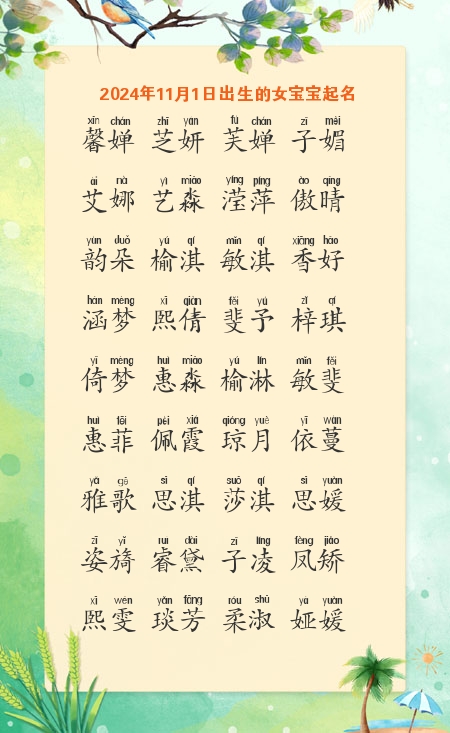 2024年11月1日出生的女宝宝起名
xīn chán zhī yán fú chán zǐ mèi
馨婵 芝妍 芙婵 子媚
ài nà yì miǎo yíng píng ào qíng
艾娜 艺淼 滢萍 傲晴
yùn duǒ yú qí mǐn qí xiāng hǎo
韵朵 榆淇 敏淇 香好
hàn mèng xī qiàn fěi yú zǐ qí
涵梦 熙倩 斐予 梓琪
yǐ mèng huì miǎo yú lín mǐn fěi
倚梦 惠淼 榆淋 敏斐
huì fēi pèi xiá qióng yuè yī wàn
惠菲 佩霞 琼月 依蔓
yǎ gē sī qí suō qí sī yuàn
雅歌 思淇 莎淇 思媛
zī yǐ ruì dài zǐ líng fèng jiǎo
姿旖 睿黛 子凌 凤矫
xī wén yǎn fāng róu shū yà yuàn
熙雯 琰芳 柔淑 娅媛